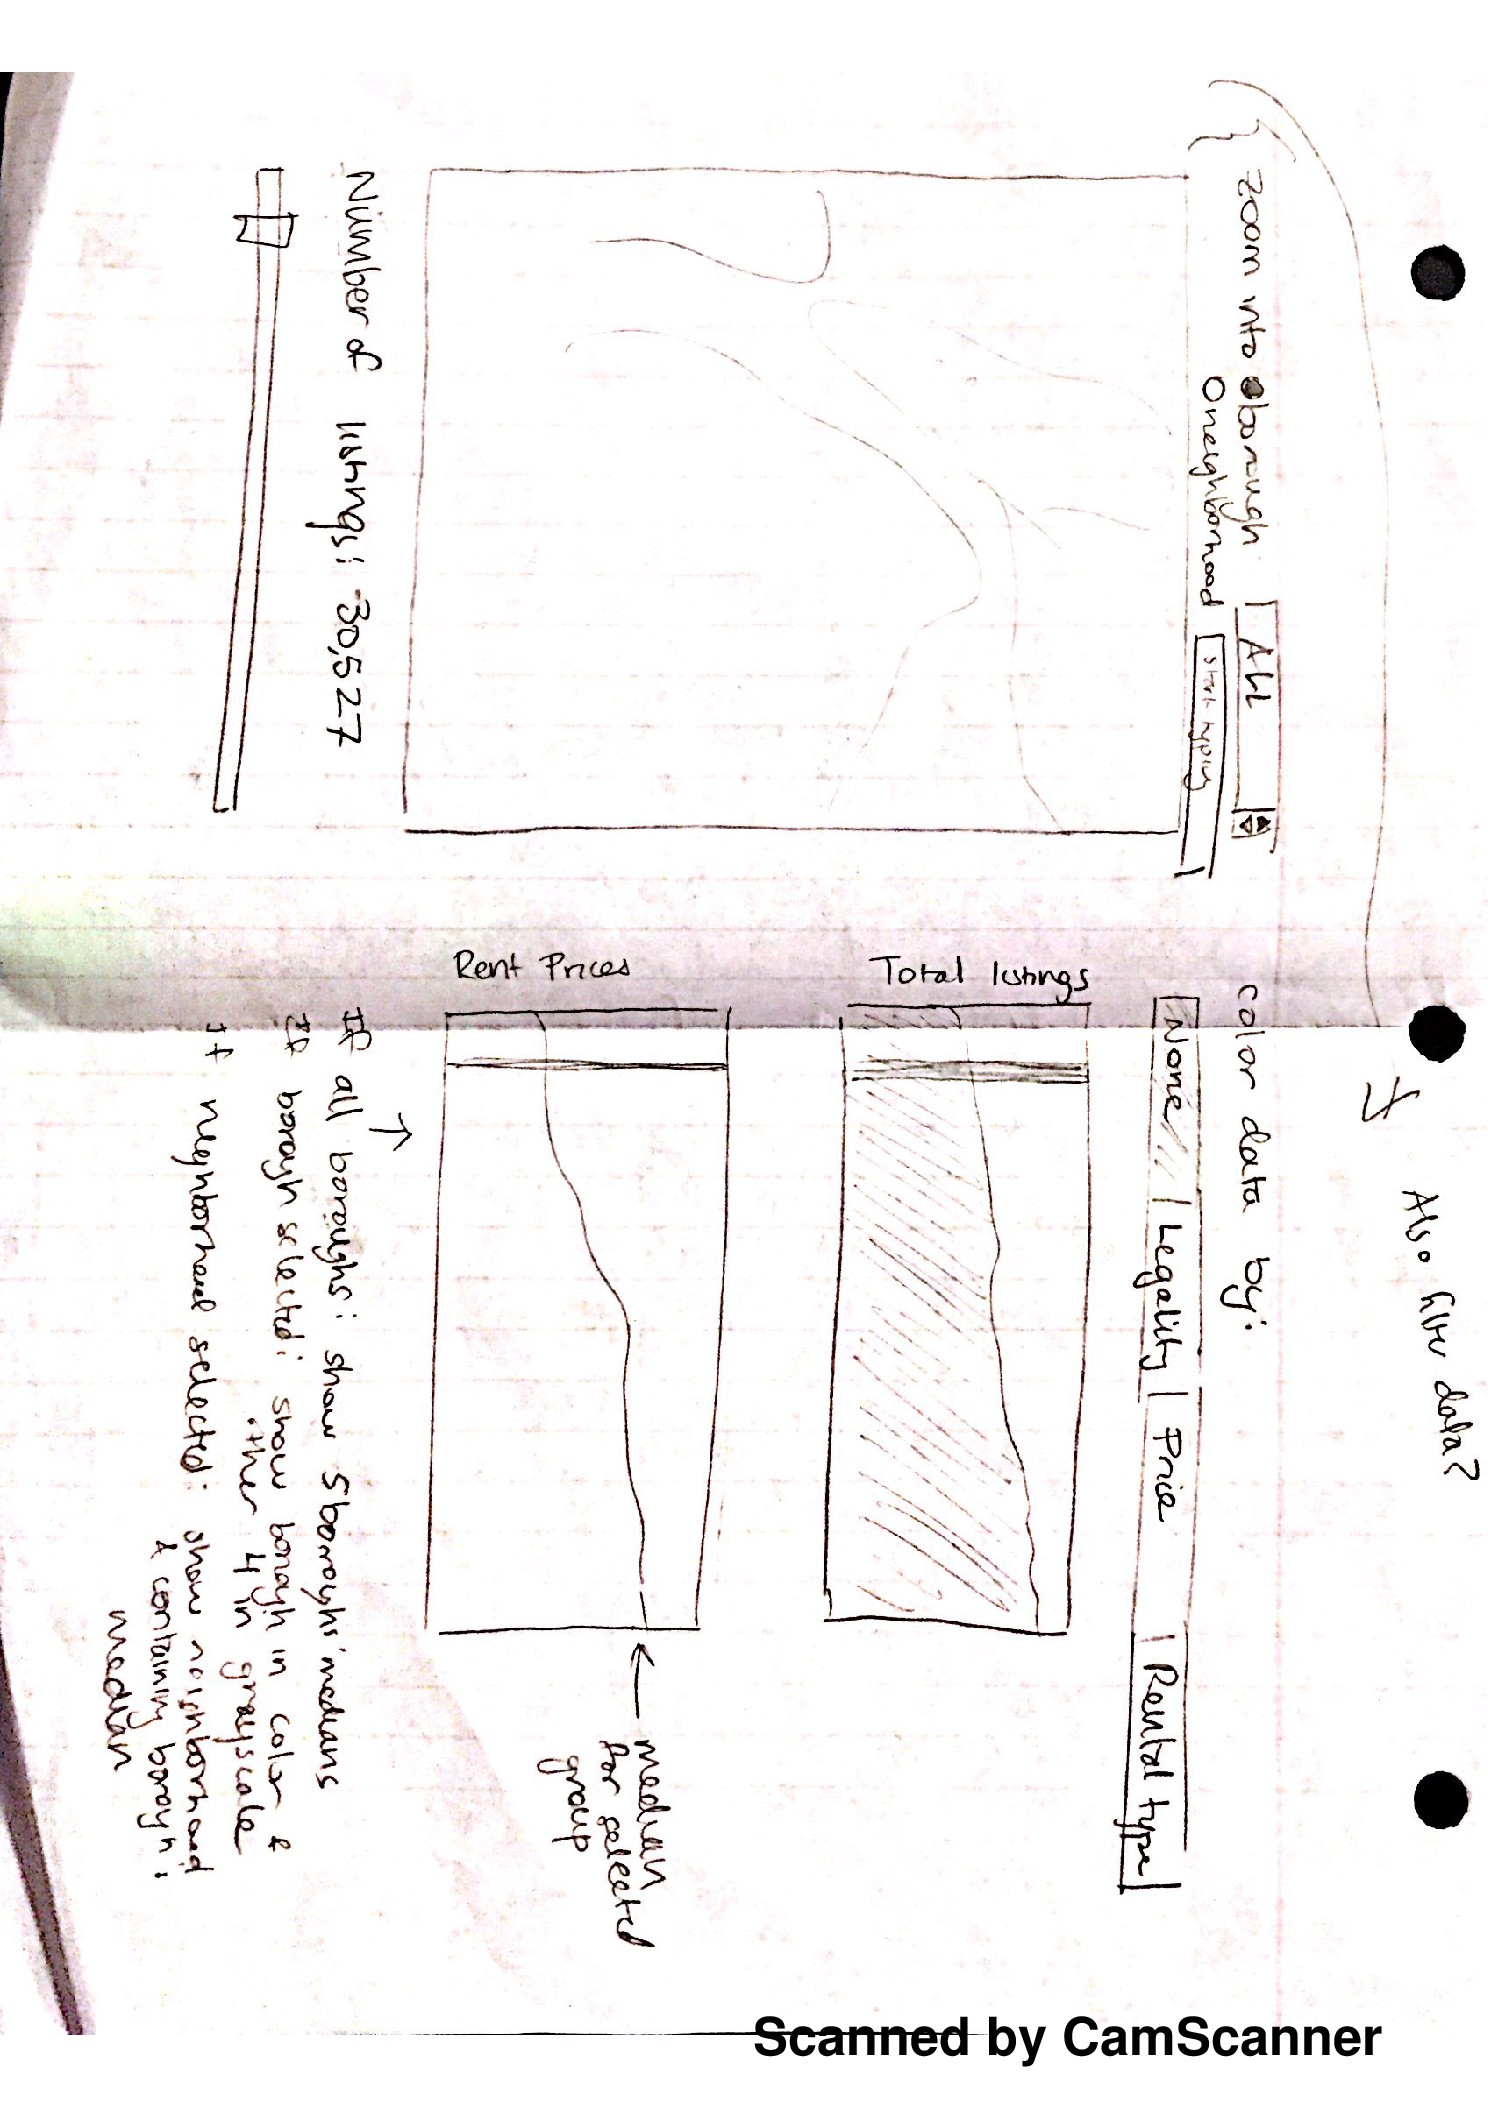 Also filter data?
Zoom into borough All
O neighborhood start typing
Number of listings: 30,527
color data by:
None Legality Price Rental type
Total listings
Rent Prices
median
for selected
group
If all boroughs: show 5 boroughs' medians
If borough selected: show borough in color &
other 4 in grayscale
If neighborhood selected: show neighborhood
& containing borough's
median
Scanned by CamScanner